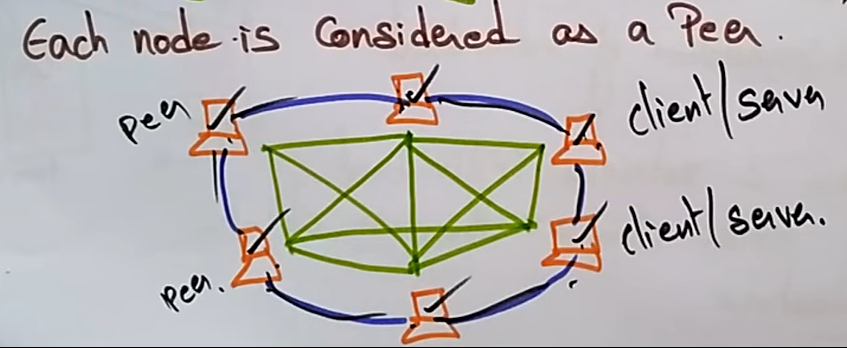 Each node is Considered as a Peer.
peer
client/server
client/server.
peer.